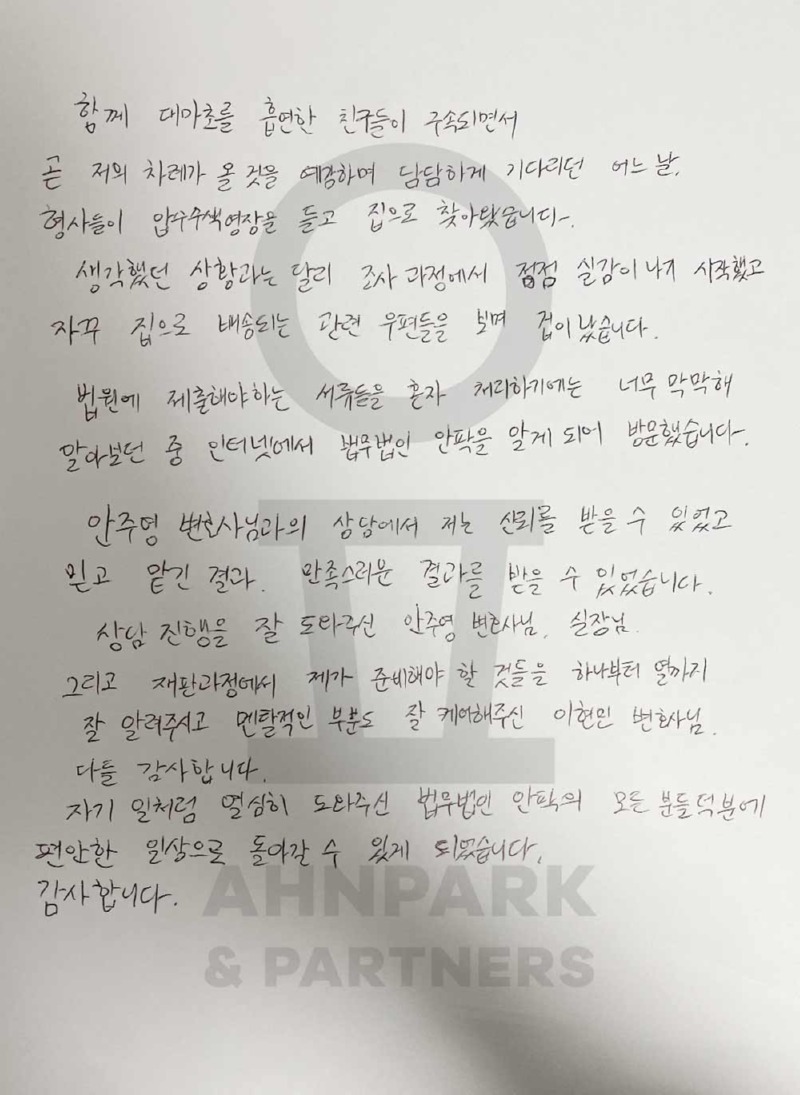 함께 대마초를 흡연한 친구들이 구속되면서
곧 저의 차례가 올 것을 예감하며 담담하게 기다리던 어느 날,
형사들이 압수수색영장을 들고 집으로 찾아왔습니다.
생각했던 상황과는 달리 조사 과정에서 점점 실감이 나기 시작했고
자꾸 집으로 배송되는 관련 우편들을 보며 겁이 났습니다.
법원에 제출해야하는 서류들을 혼자 처리하기에는 너무 막막해
알아보던 중 인터넷에서 법무법인 안팍을 알게 되어 방문했습니다.
안주영 변호사님과의 상담에서 저는 신뢰를 받을 수 있었고
믿고 맡긴 결과, 만족스러운 결과를 받을 수 있었습니다.
상담 진행을 잘 도와주신 안주영 변호사님, 실장님
그리고 재판과정에서 제가 준비해야 할 것들을 하나부터 열까지
잘 알려주시고 멘탈적인 부분도 잘 케어해주신 이현민 변호사님
다들 감사합니다.
자기 일처럼 열심히 도와주신 법무법인 안팍의 모든 분들 덕분에
편안한 일상으로 돌아갈 수 있게 되었습니다.
감사합니다.
AHNPARK
& PARTNERS